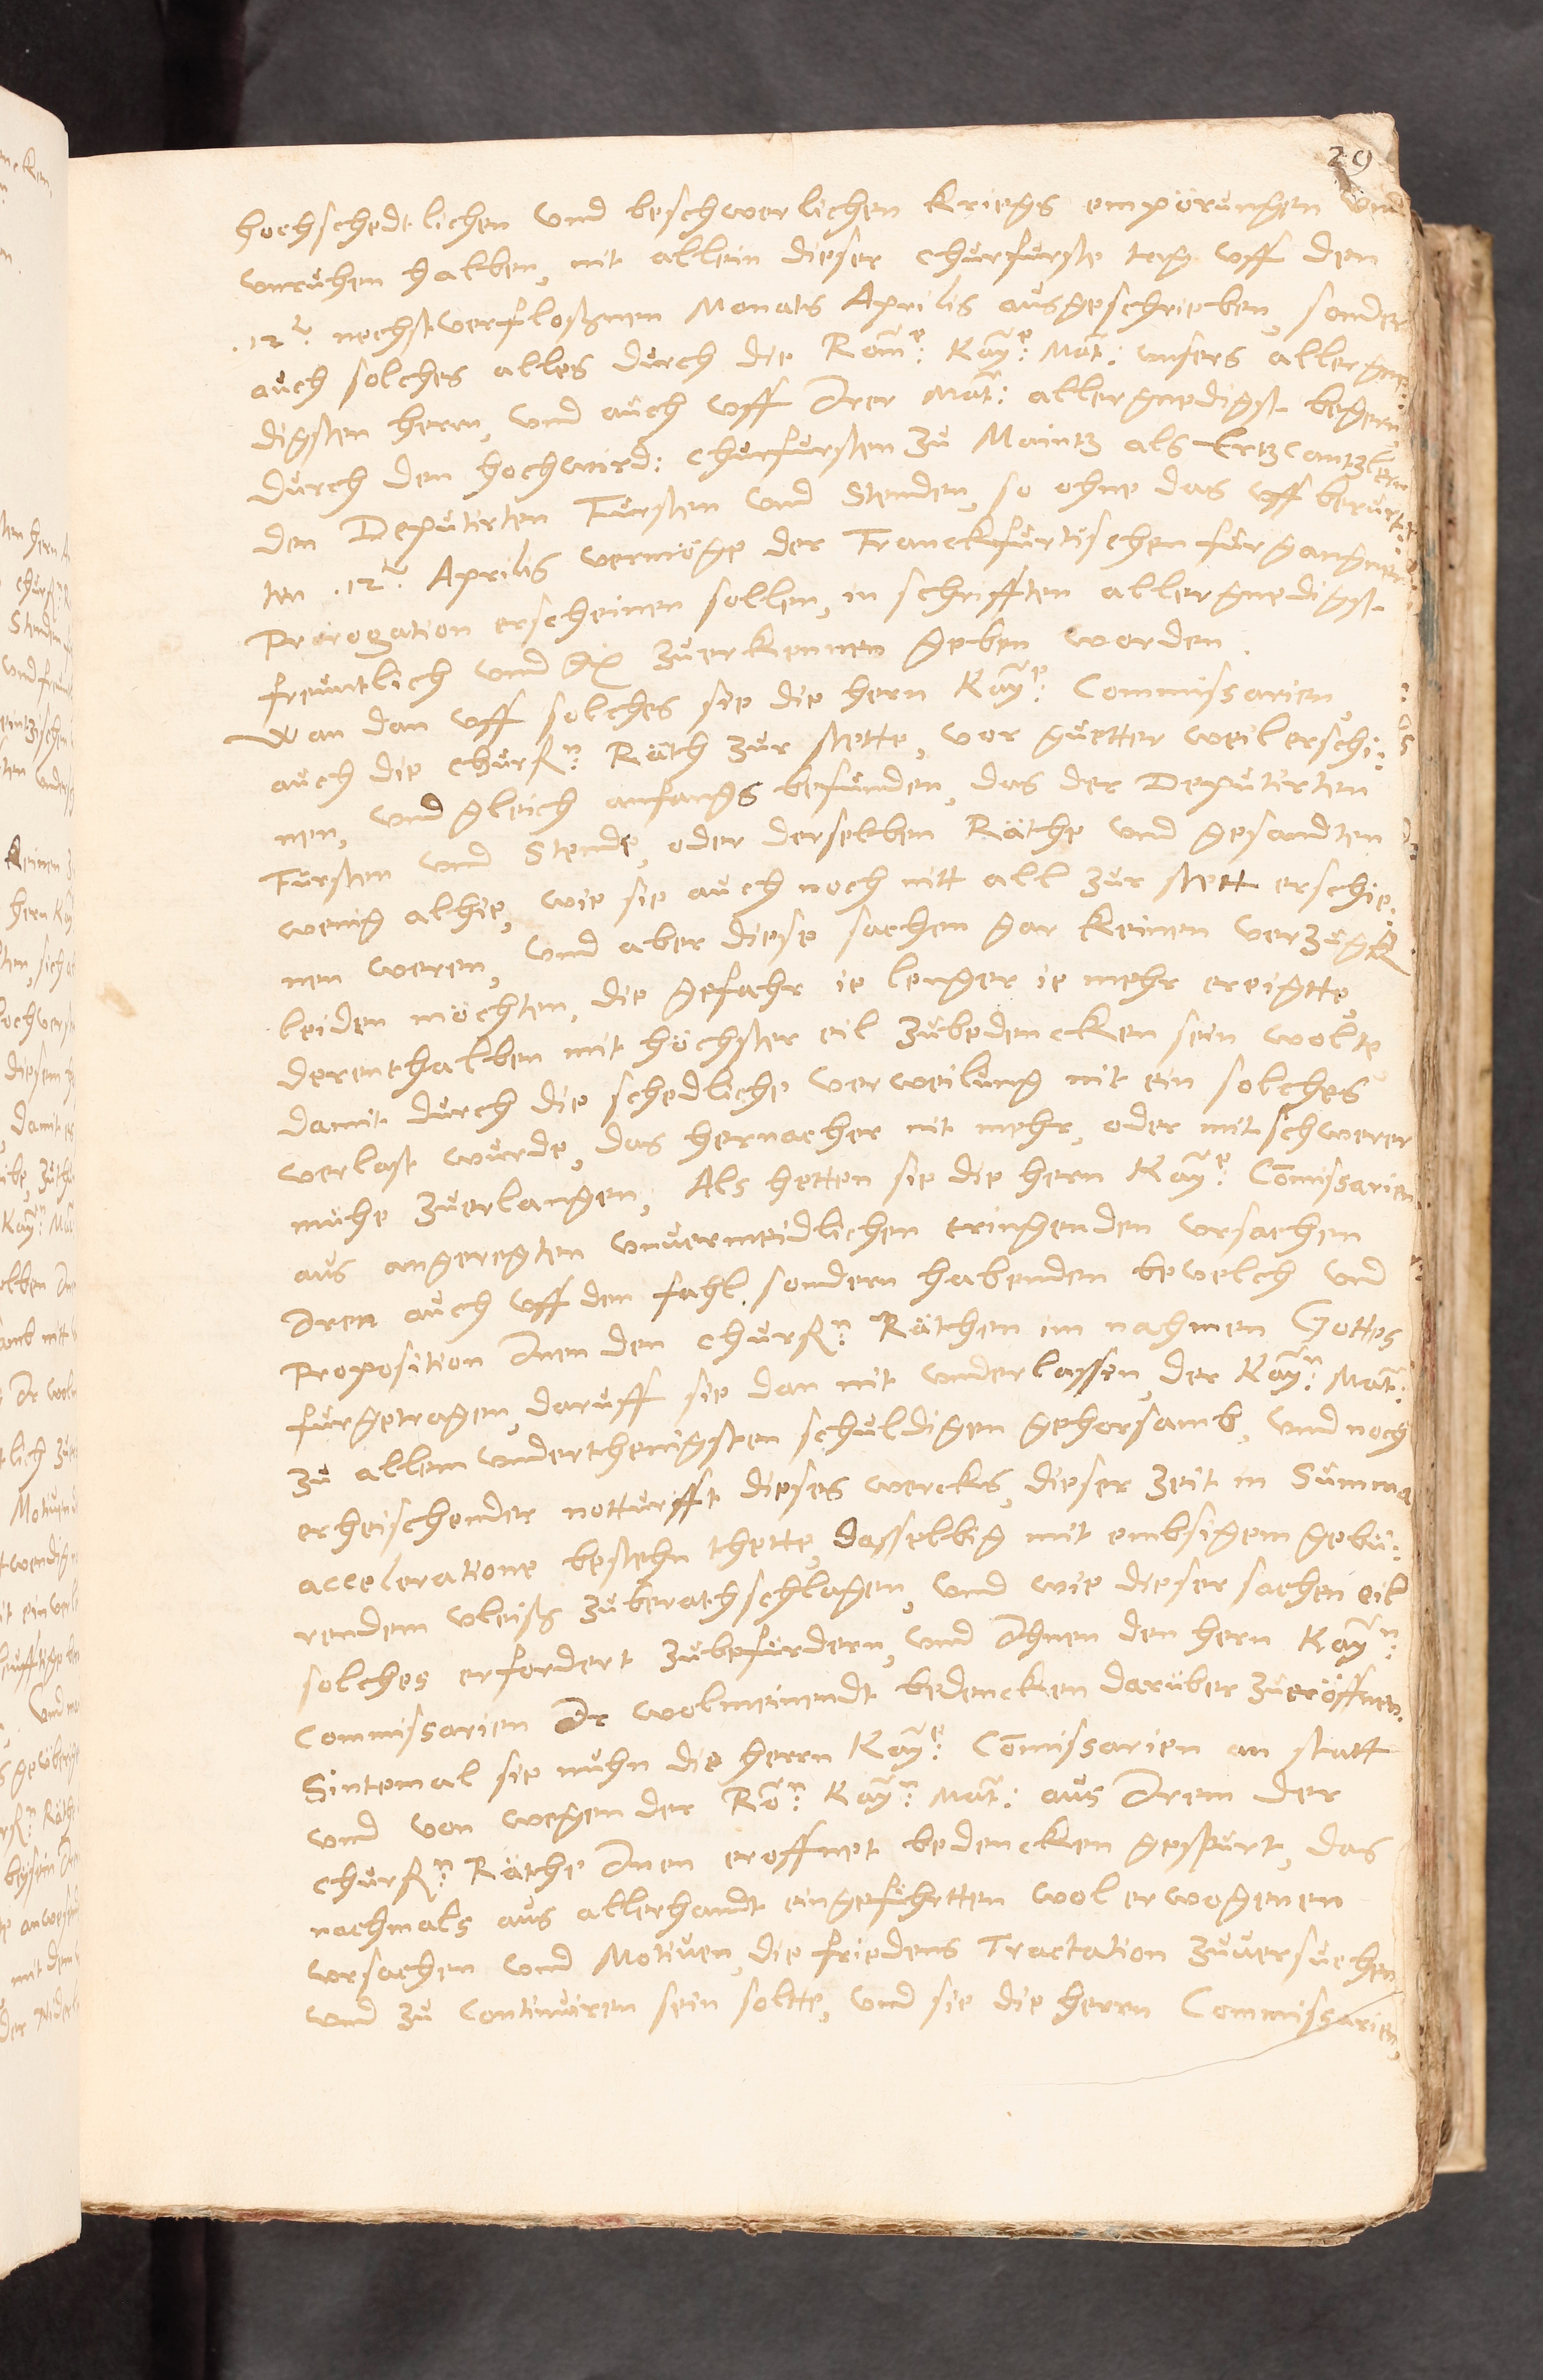 29
hochschedtlichen vnd beschwerlichen Kriegs empörungen vnd
vnruhen halben, nit allein dieser Churfürste tag vff den
.12ᵗ. nechstverfloßnen Monats Aprilis ausgeschrieben, sonder
auch solches alles durch die Romᵉ: Kayᵉ: Mat: vnsers allergne:
digsten herrn, vnd auch vff Irer Mat: allergnedigst begern
durch den hochwird: Churfursten zu Maintz als Ertzcantzlern
den Deputirten Fursten vnd Stenden, so ohne das vff berur:
ten .12ᵗ. Aprilis vermöge der Franckfurtischen furgangner
Prorogation erscheinen sollen, in schrifften allergnedigst
freuntlich vnd zuerkennen geben worden.
Wan dan vff solches sie die hern Kayᵉ: Commissarien,
auch die churfⁿ: Räth zur stette, vor guetter weil erschi:
nen, vnd gleich anfangs befunden, das der Deputirten
Fursten vnd Stende, oder derselben Räthe vnd gesandten
wenig alhie, wie sie auch noch nitt all zur stett erschie:
nen weren, vnd aber diese sachen gar keinen verzugk
leiden möchten, die gefahr ie lenger ie mehr ereigtte,
derenthalben mit höchster eil zubedencken sein wolte
damit durch die schedliche verweilung nit ein solches
verlast wurde, das hernacher nit mehr, oder mit schwerer
mühe zuerlangen, Als hetten sie die hern Kayᵉ: Comissarien
aus angeregten vnuermeidlichen tringenden vrsachen
Iren auch vff den fahl sondern habenden bevelch vnd
Proposition Inen den churfⁿ: Räthen im nahmen Gottes
furgetragen, daruff sie dan nit vnderlassen, der Kayⁿ: Mat:
zu allem vnderthenigsten schuldigen gehorsamb, vnd noch
erheischender notturfft dieses wercks, dieser zeit in Summa
acceleratione bestehn thette, dasselbig mit embsigem gebü:
rendem vleiß zuberathschlagen, vnd wie dieser sachen eil
solches erfordert zubefurdern, vnd Ihnen den hern Kayⁿ:
Commissarien Ir wolmeinendt bedencken darüber zueröffnen.
Sintemal sie nuhn die herrn Kayᵉ: Comissarien an statt
vnd von wegen der Roⁿ: Kayⁿ: Mat: aus Irem der
churfⁿ: Räthe Inen eroffnet bedencken gespurt, das
nachmals aus allerhandt eingefuhrtten wol erwogenen
vrsachen vnd Motiuen, die friedens Tractation zuuersuchen
vnd zu continuiren sein soltte, vnd sie die herrn Commissarien,